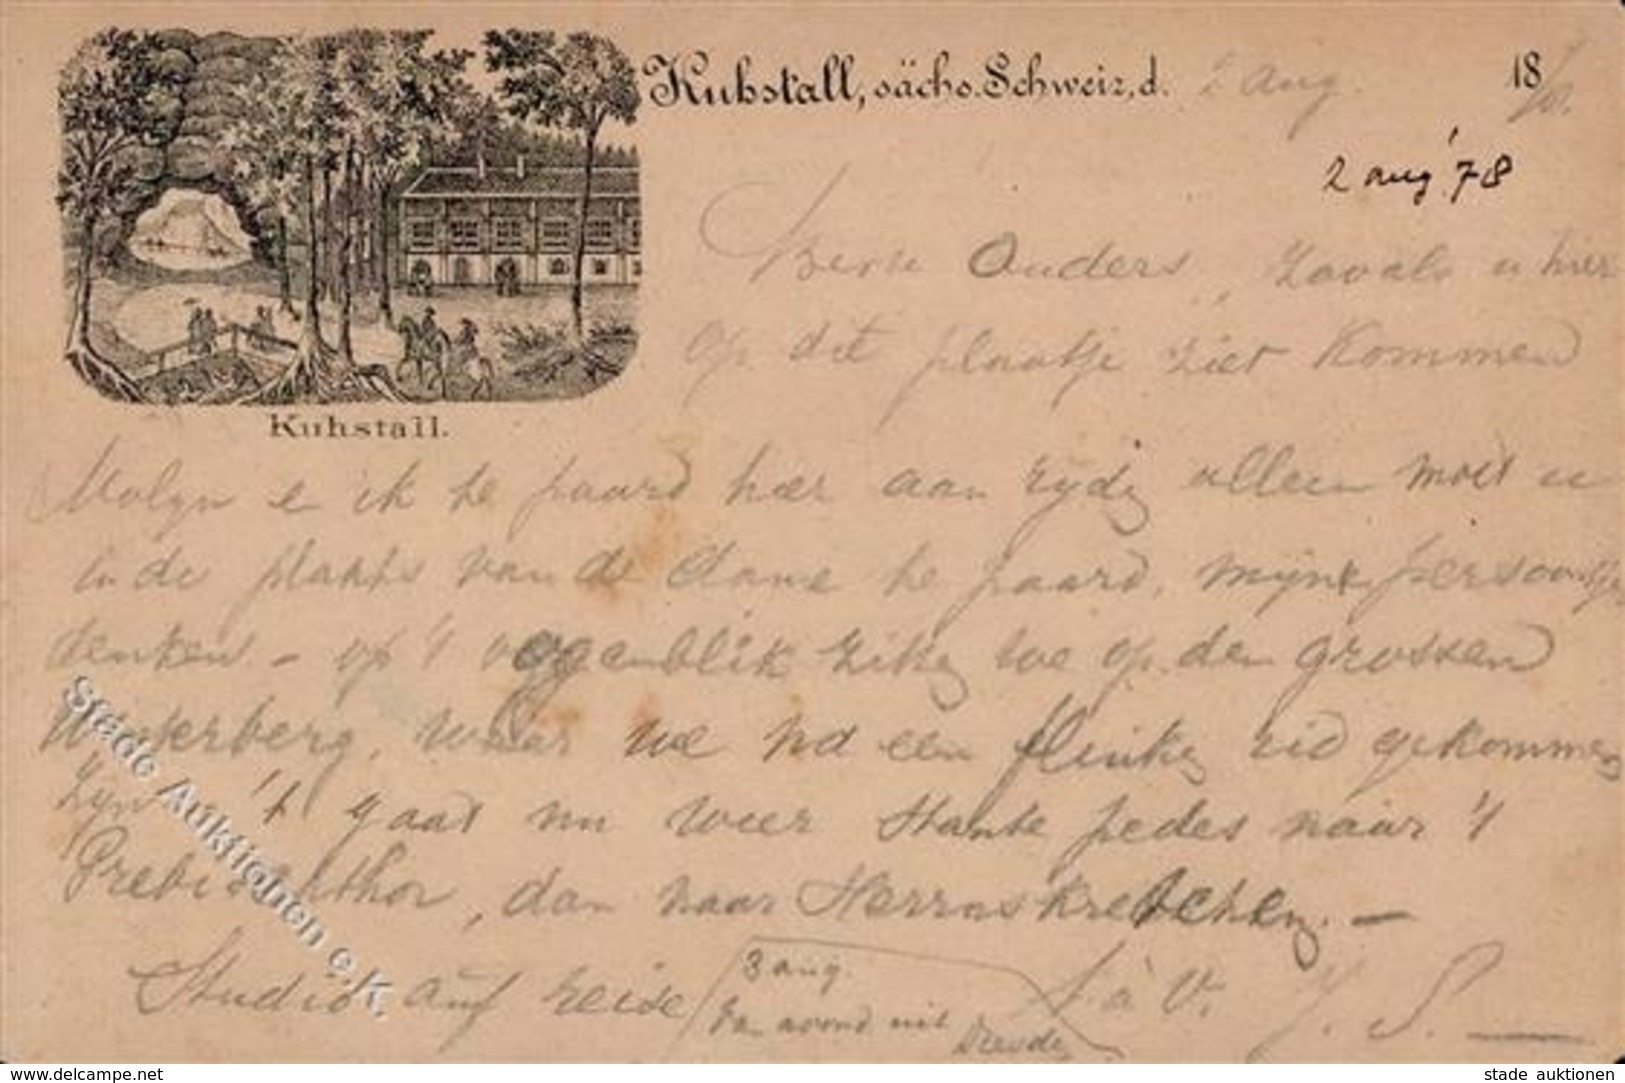 Kuhstall, sächs. Schweiz, d. 2 Aug. 18
2 aug '78
Kuhstall.
Beste Ouders, Zooals u hier
op dit plaatje ziet kommen
Molyn e ik te paard hier aan rijdg alleen moet u
in de plaats van de dame te paard, mijne persoontje
denken - op 't oogenblik zitte we op den grossen
Winterberg, waar we nd een flinke rid gekommen
zyn 't gaat nu weer stante pedes naar 't
Prebischthor, dan naar Herrnskretchen. —
Studio auf reise
3 aug.
Van avond uit Dresde
t. à V. J. S.
Stade Auktionen e.K.
www.delcampe.net
stade auktionen